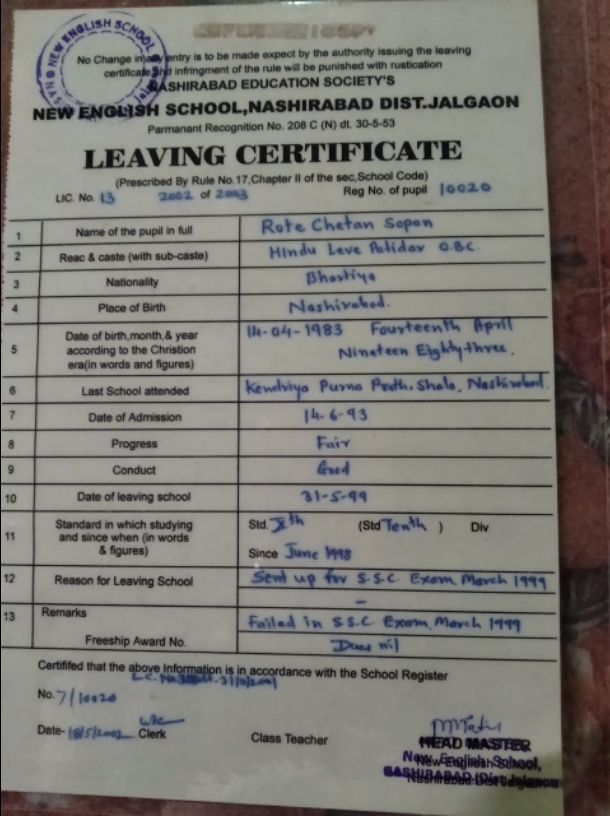 NEW ENGLISH SCHOOL
No Change in any entry is to be made expect by the authority issuing the leaving
certificate and infringment of the rule will be punished with rustication
NASHIRABAD EDUCATION SOCIETY'S
NEW ENGLISH SCHOOL,NASHIRABAD DIST.JALGAON
Parmanant Recognition No. 208 C (N) dt. 30-5-53
LEAVING CERTIFICATE
(Prescribed By Rule No.17,Chapter II of the sec,School Code)
LIC. No. 13 2002 of 2003 Reg No. of pupil 10020
1 Name of the pupil in full Rote Chetan Sopan
2 Reac & caste (with sub-caste) Hindu Leve Patidar O.B.C.
3 Nationality Bhartiya
4 Place of Birth Nashirabad.
5 Date of birth,month,& year according to the Christion era(in words and figures) 14-04-1983 Fourteenth April
Nineteen Eightythree.
6 Last School attended Kendriya Purna Prath. Shala, Nashirabad.
7 Date of Admission 14-6-93
8 Progress Fair
9 Conduct Good
10 Date of leaving school 31-5-99
11 Standard in which studying and since when (in words & figures) Std. Xth (Std Tenth ) Div
Since June 1998
12 Reason for Leaving School Sent up for S.S.C. Exam March 1999
-
13 Remarks Failed in S.S.C Exam. March 1999
Freeship Award No. Dues nil
Certifified that the above Information is in accordance with the School Register
No. 7/10020
Date- 18/5/2002 Clerk
Class Teacher
HEAD MASTER
New English School,
NASHIRABAD (Dist Jalgaon